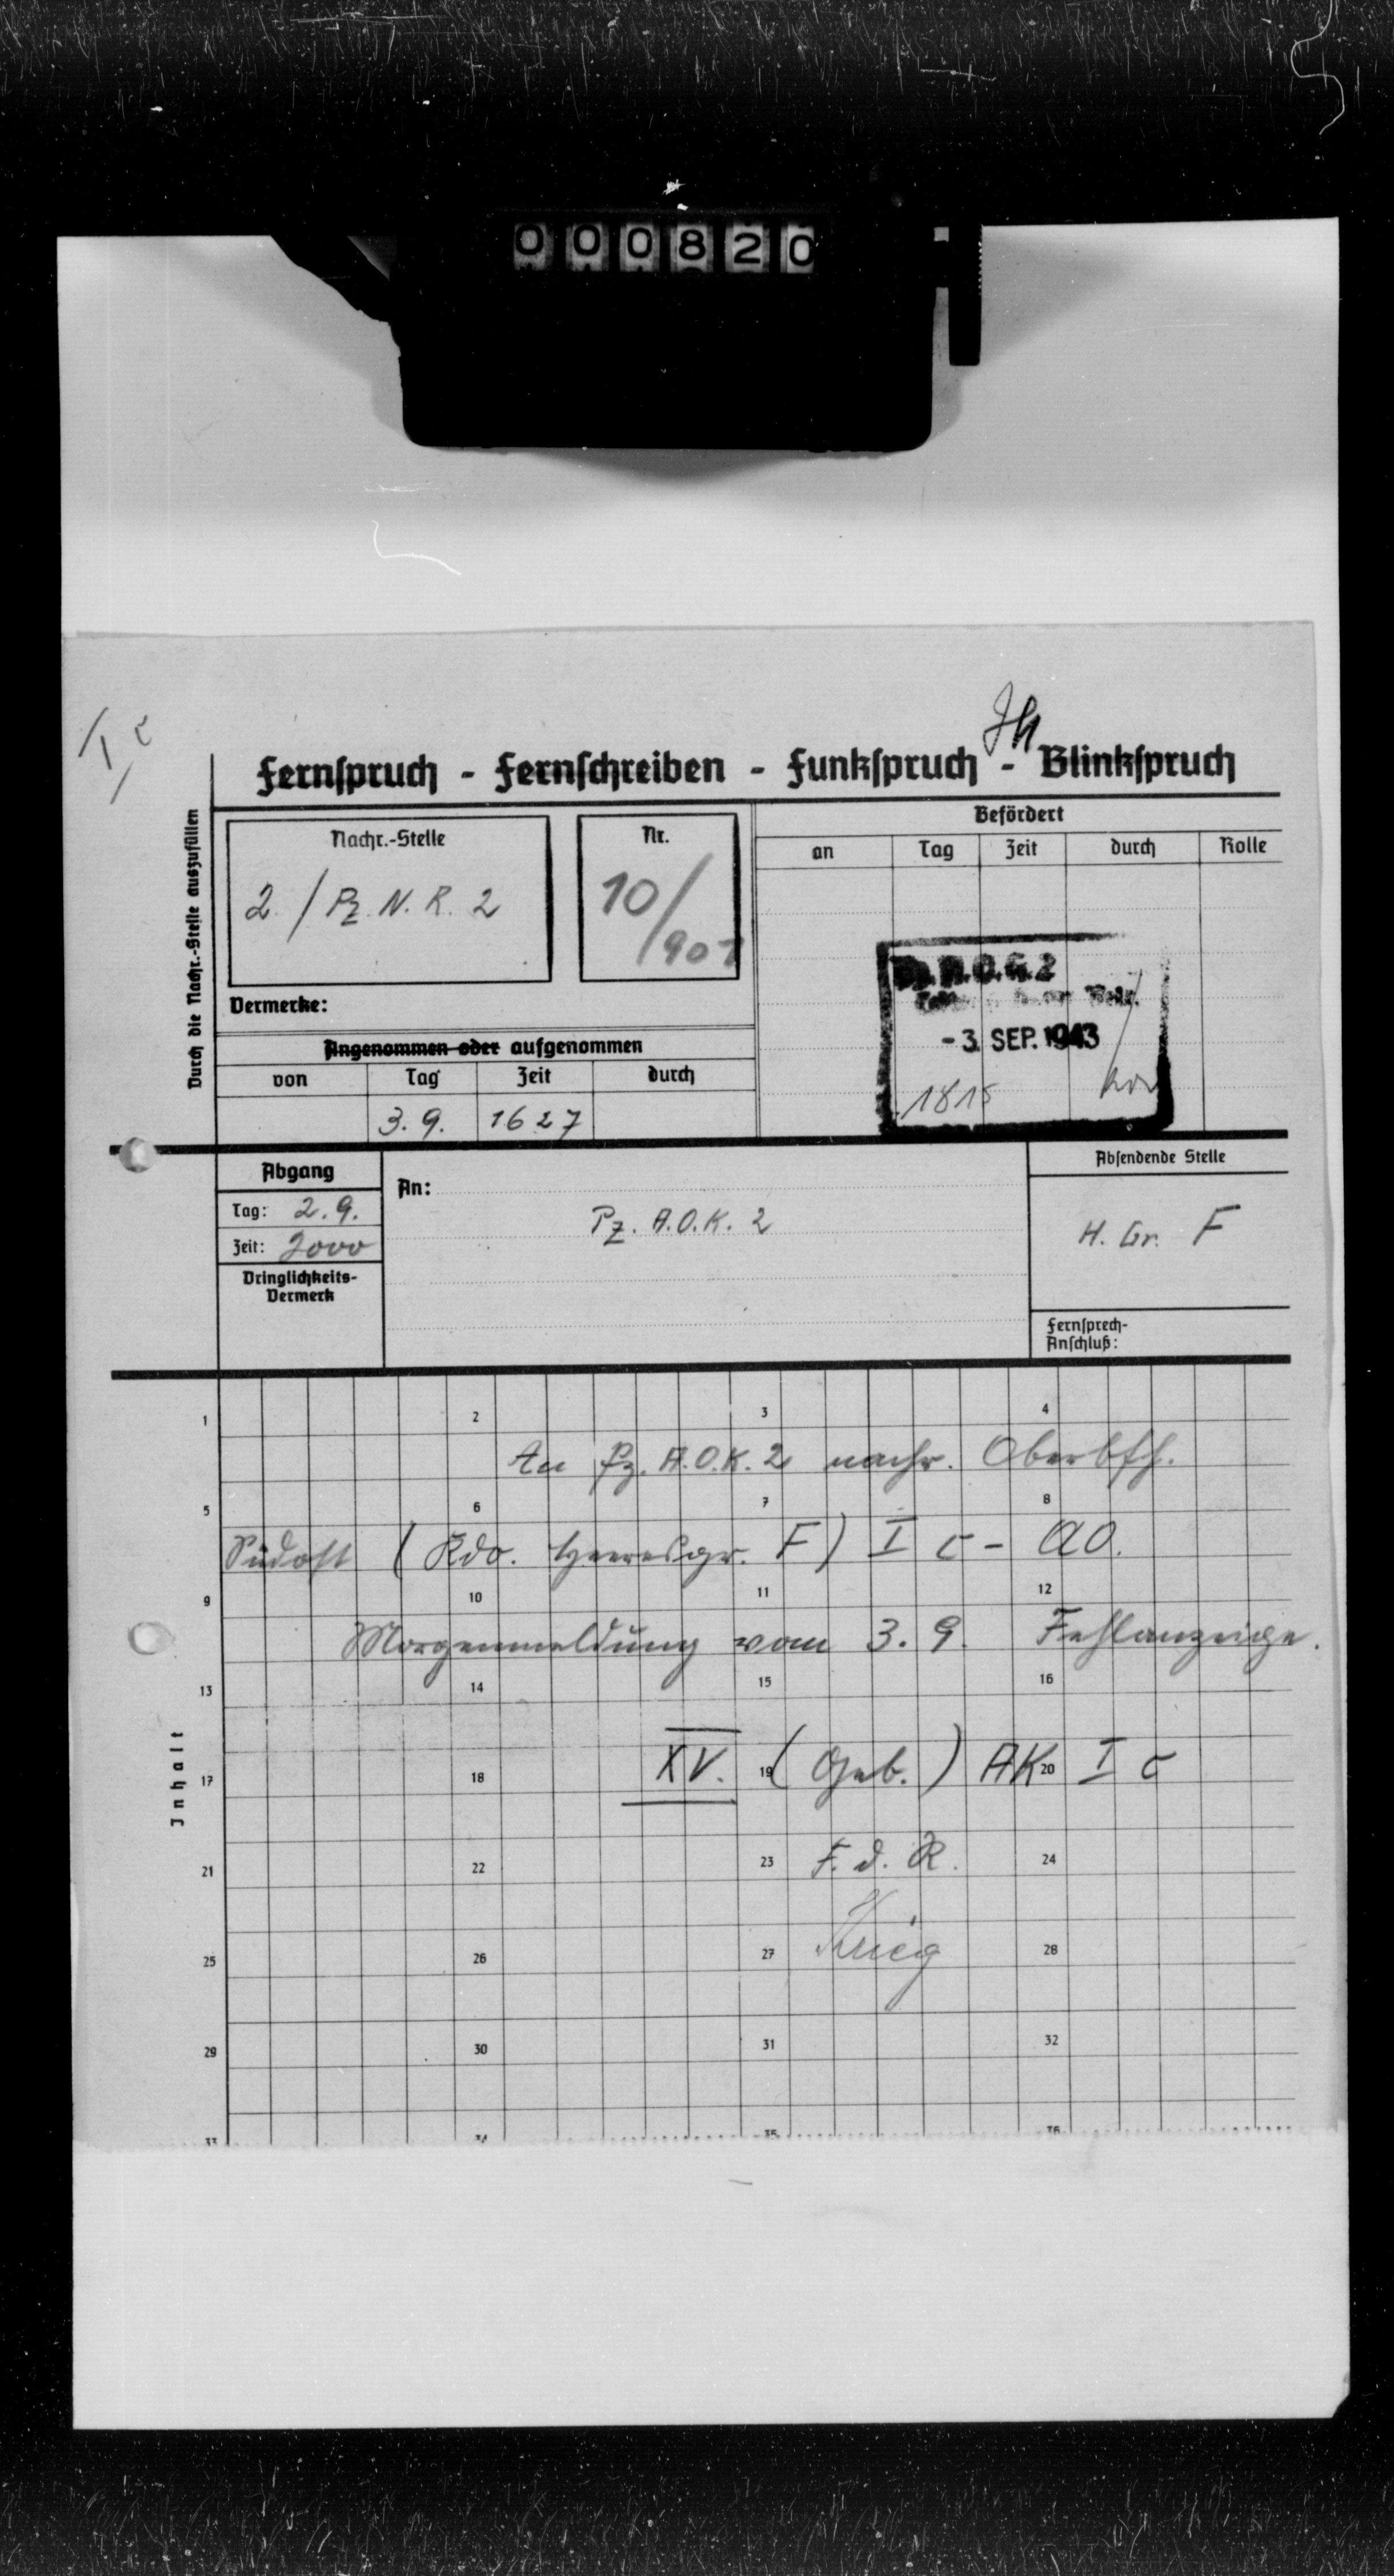 000820
I c
Fernspruch - Fernschreiben - Funkspruch - Blinkspruch
Durch die Nachr.-Stelle auszufüllen
Nachr.-Stelle
2 / Pz. N. R. 2
Nr.
10/
907
Befördert
an Tag Zeit durch Rolle
Pz. A.O.K. 2
- 3. SEP. 1943
1815
Vermerke:
Angenommen oder aufgenommen
von Tag Zeit durch
3. 9. 1627
Abgang
Tag: 2. 9.
Zeit: 2000
Dringlichkeits-
Vermerk
An:
Pz. A.O.K. 2
Absendende Stelle
H. Gr. F
Fernsprech-
Anschluß:
Inhalt
1 2 3 4
An Pz. A.O.K. 2 nachr. Oberbfh.
5 6 7 8
Südost (Kdo. Heeresgr. F) I c - AO.
9 10 11 12
Morgenmeldung vom 3. 9. Fehlanzeige.
13 14 15 16
XV. (Geb.) AK I c
17 18 19 20
F. d. R.
21 22 23 24
Krieg
25 26 27 28
29 30 31 32
33 34 35 36